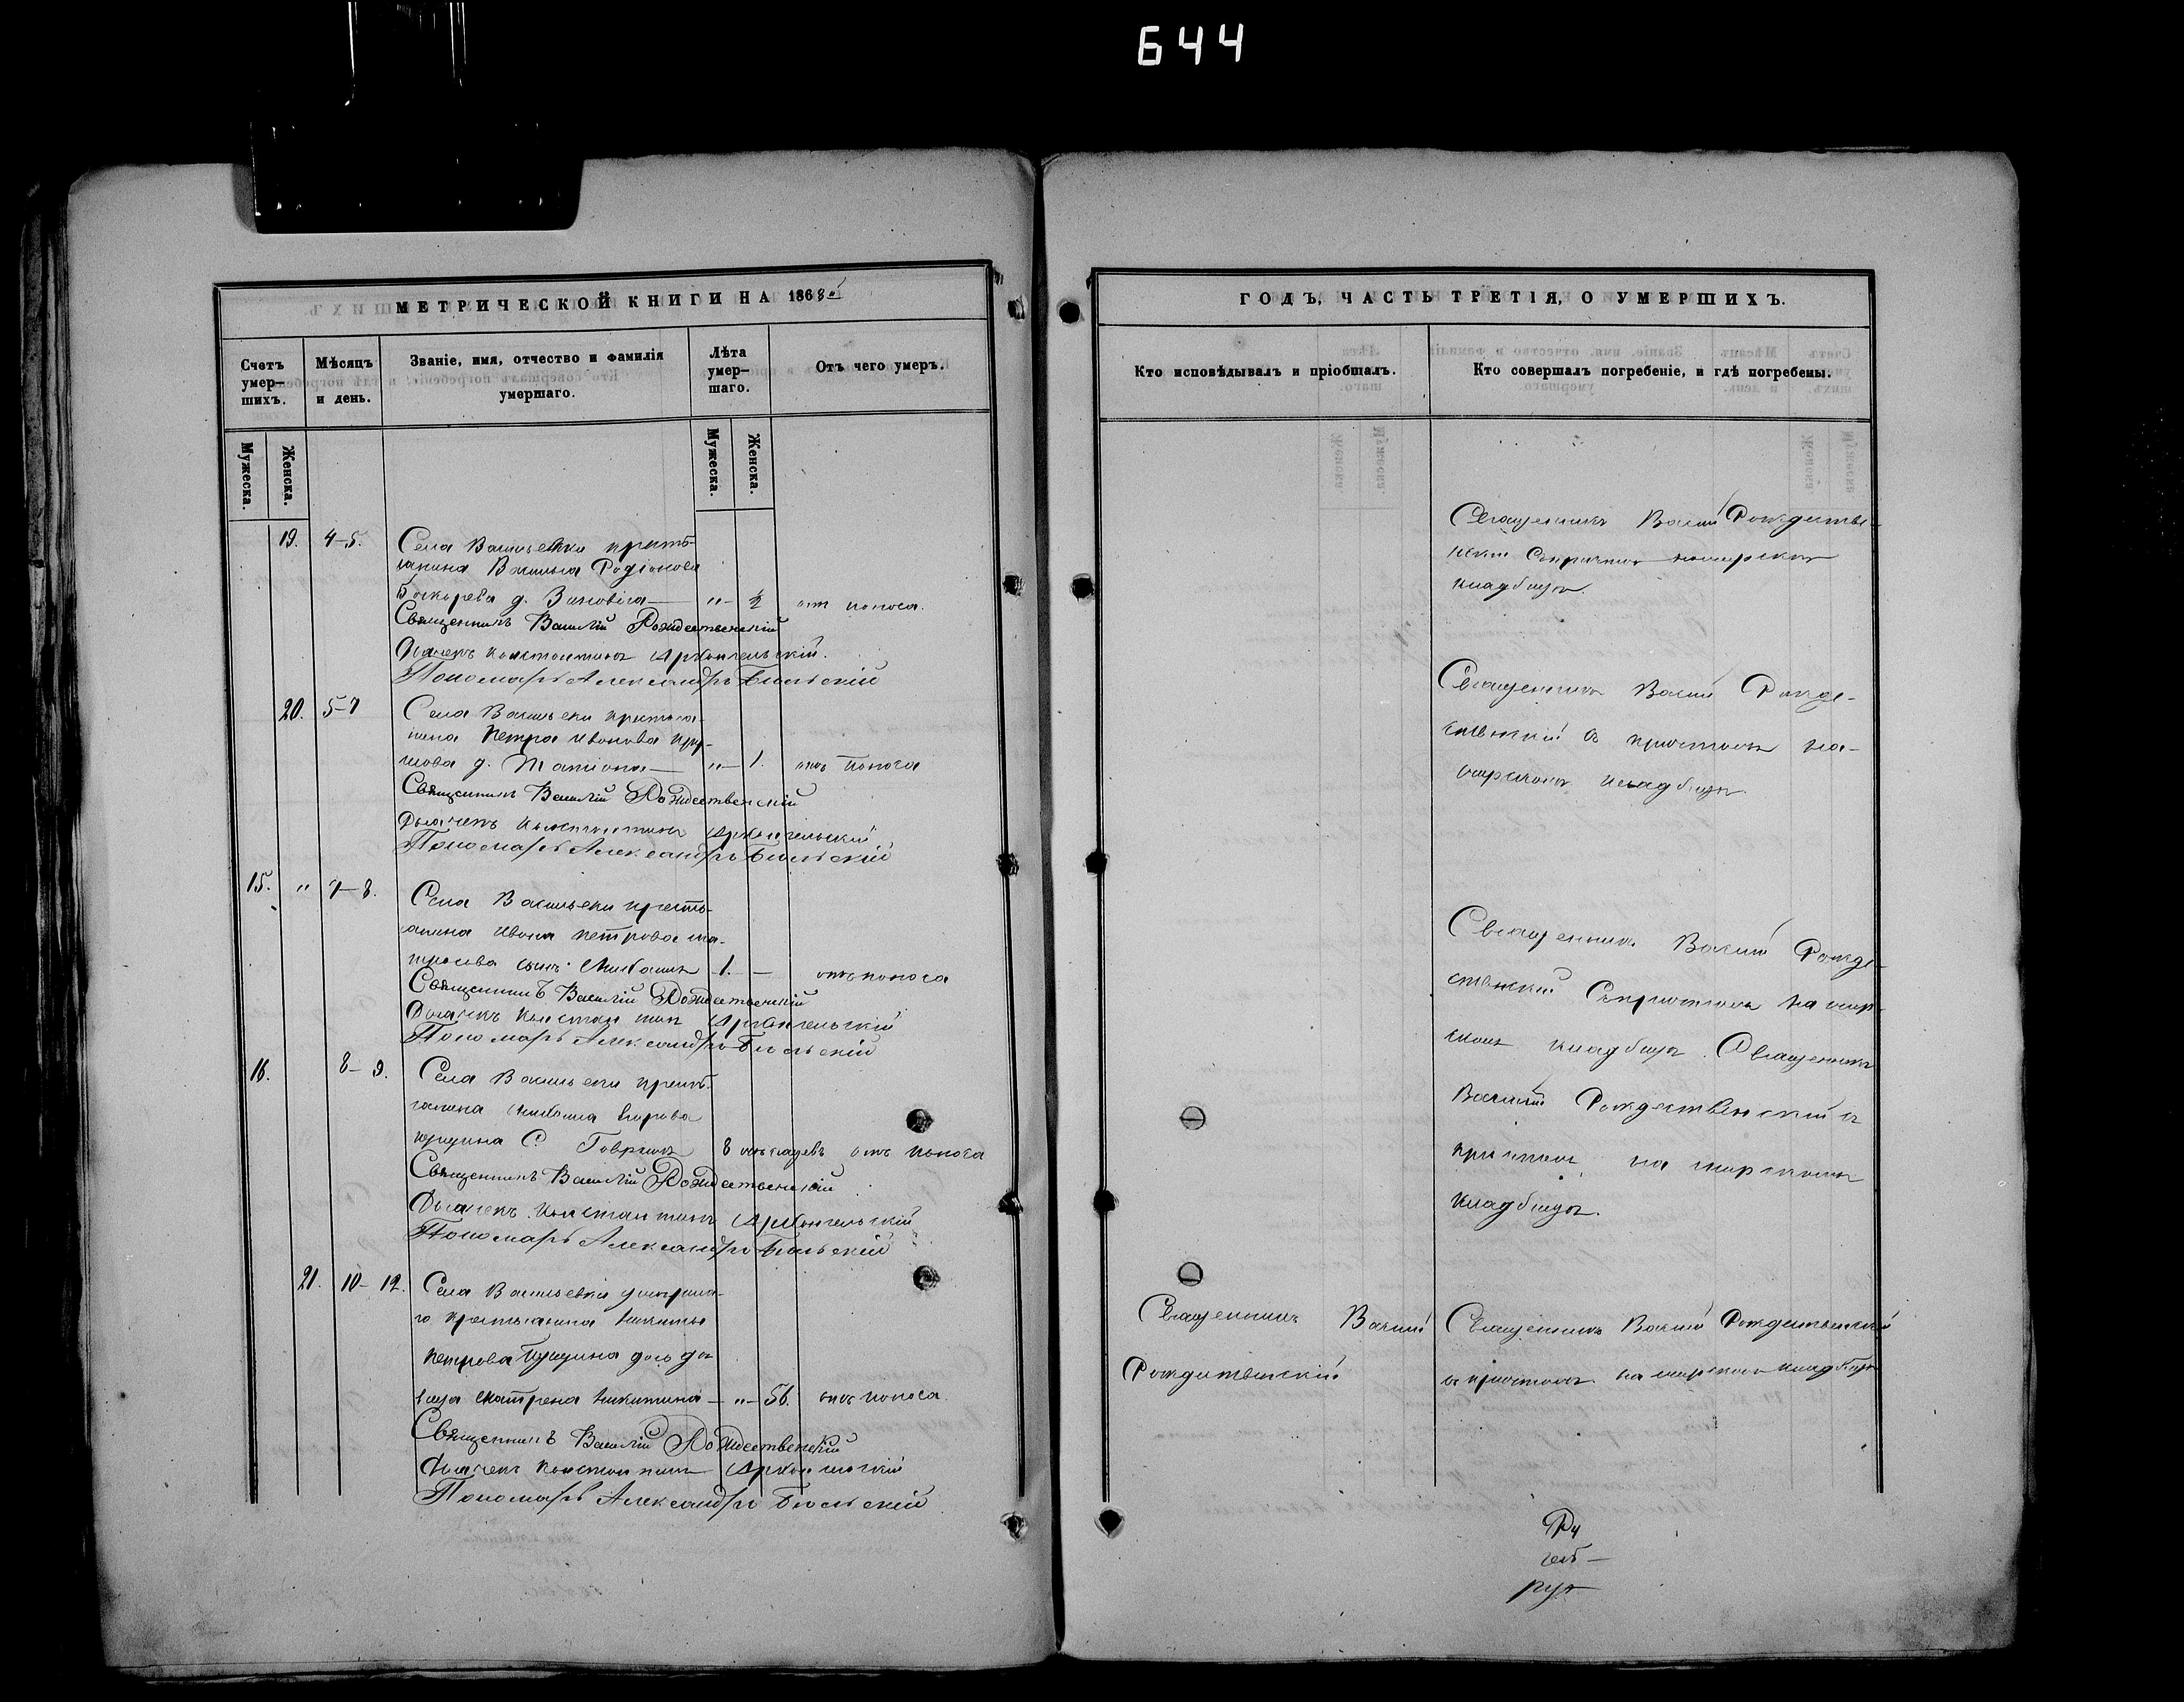 644
МЕТРИЧЕСКОЙ КНИГИ НА 1868й
Счетъ умер-шихъ.
Мѣсяцъ и день.
Званіе, имя, отчество и фамилія умершаго.
Лѣта умер-шаго.
Отъ чего умеръ.
Мужеска.
Женска.
Мужеска.
Женска.
19. 4-5. Села Васильевки кресть-
янина Василья Родіонова
д. Зиновія — „ — ½ отъ поноса.
Священникъ Василій Рождественскій
Дьячекъ Константинъ Архангельскій.
Пономарь Александръ Бѣльскій
20. 5-7 Села Васильевки крестья-
нина Петра Иванова
д. Татіана — „ — 1. отъ поноса
Священникъ Василій Рождественскій
Дьячекъ Константинъ Архангельскій
Пономарь Александръ Бѣльскій
15. „ 7-8. Села Васильевки кресть-
янина Ивана Петрова
сынъ Михаилъ 1. — отъ поноса
Священникъ Василій Рождественскій
Дьячекъ Константинъ Архангельскій
Пономарь Александръ Бѣльскій
16. 8-9. Села Васильевки кресть-
янина Михаила Егорова
С. Гавріилъ 8 мѣсяцевъ отъ поноса
Священникъ Василій Рождественскій
Дьячекъ Константинъ Архангельскій
Пономарь Александръ Бѣльскій
21. 10-12. Села Васильевки умерша-
го крестьянина Никиты
Петрова
Матрена Никитина — „ — 56. отъ поноса.
Священникъ Василій Рождественскій
Дьячекъ Константинъ Архангельскій
Пономарь Александръ Бѣльскій
ГОДЪ, ЧАСТЬ ТРЕТІЯ, О УМЕРШИХЪ.
Кто исповѣдывалъ и пріобщалъ.
Кто совершалъ погребеніе, и гдѣ погребены.
Священникъ Василій Рождестве-
нскій Съ причтомъ на мірскомъ
кладбищѣ.
Священникъ Василій Рожде-
ственскій съ причтомъ на
мірскомъ кладбищѣ.
Священникъ Василій Рожде-
ственскій Съ причтомъ на мир-
скомъ кладбищѣ. Священникъ
Василій Рождественскій съ
причтомъ на мирскомъ
кладбищѣ.
Священникъ Василій
Рождественскій
Священникъ Василій Рождественскій
съ причтомъ на мирскомъ кладбищѣ